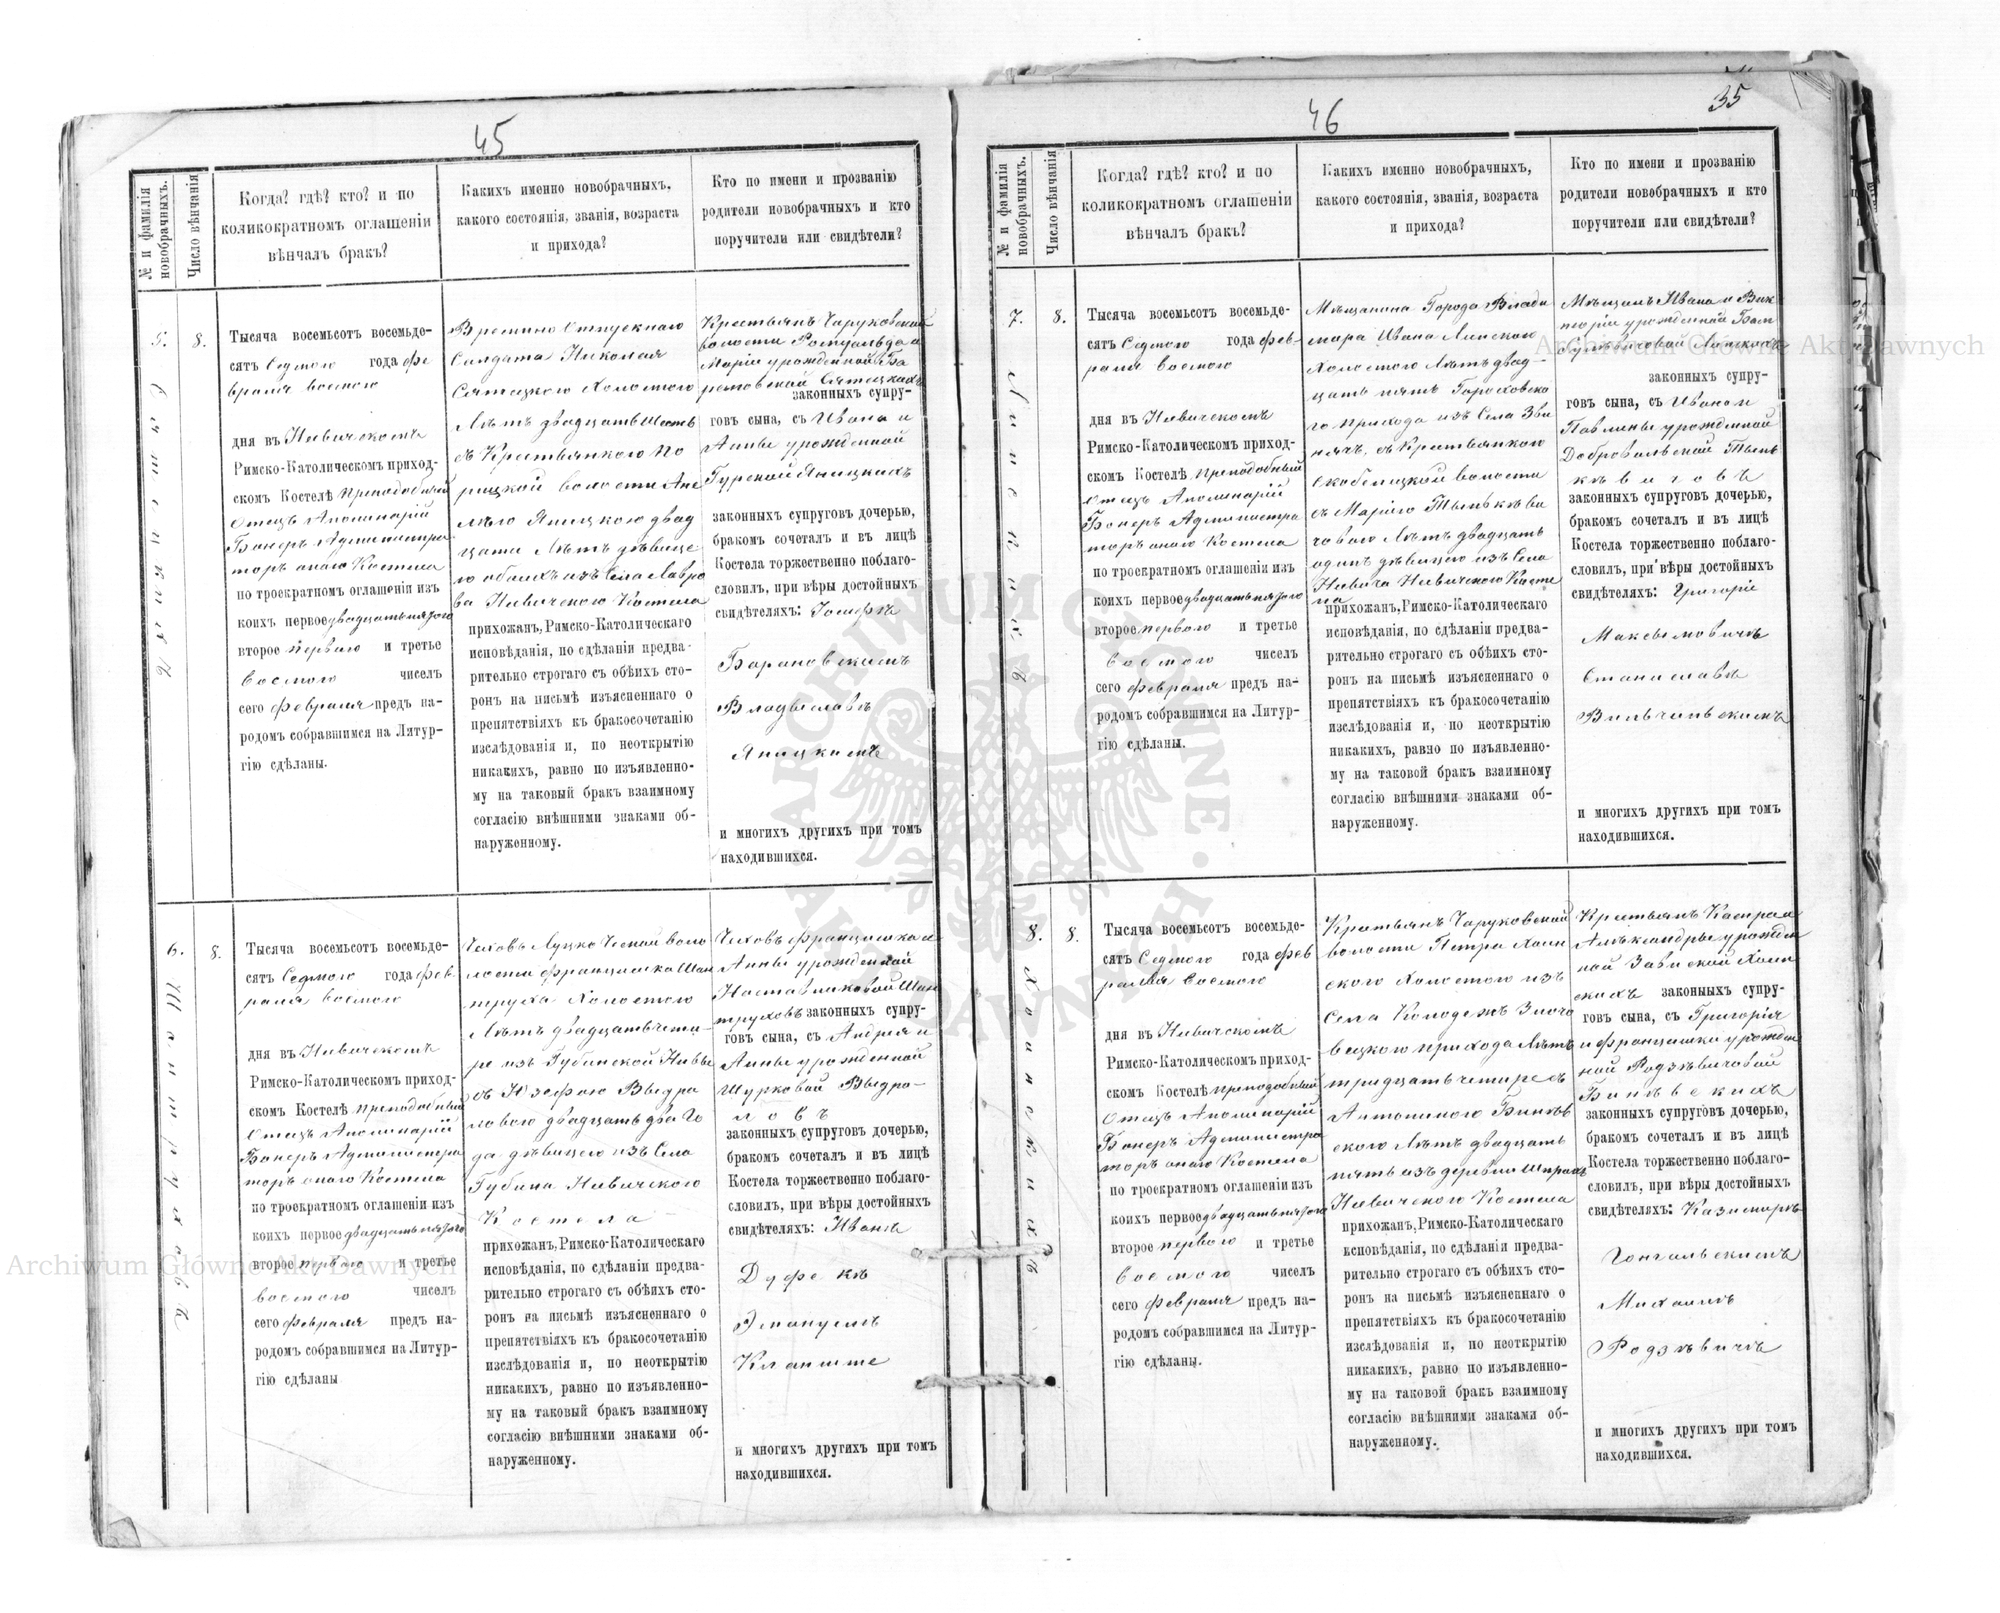 45
№ и фамилія новобрачныхъ.
Число вѣнчанія
Когда? гдѣ? кто? и по
коликократномъ оглашеніи
вѣнчалъ бракъ?
Какихъ именно новобрачныхъ,
какого состоянія, званія, возраста
и прихода?
Кто по имени и прозванію
родители новобрачныхъ и кто
поручители или свидѣтели?
5.
8.
Тысяча восемьсотъ восемьде-
сятъ Седмого года фе
враля восмого
дня въ Нивичскомъ
Римско-Католическомъ приход-
скомъ Костелѣ преподобный
Отецъ Аполинарій
Бонеръ Администра
торъ онаго Костела
по троекратномъ оглашеніи изъ
коихъ первое двадцать пятого
второе перваго и третье
восмого чиселъ
сего февраля предъ на-
родомъ собравшимся на Литур-
гію сдѣланы.
Времино Отпускнаго
Солдата Николая
Сятецкого Холостого
Лѣтъ двадцать шесть
съ Крестьянкого По
рицкой волости Ане
лѣю Яницкою двад
цати Лѣтъ дѣвице
ю обоихъ изъ Села Лавро
ва Нивичского Костела
прихожанъ, Римско-Католическаго
исповѣданія, по сдѣланіи предва-
рительно строгаго съ обѣихъ сто-
ронъ на письмѣ изъясненнаго о
препятствіяхъ къ бракосочетанію
изслѣдованія и, по неоткрытію
никакихъ, равно по изъявленно-
му на таковый бракъ взаимному
согласію внѣшними знаками об-
наруженному.
Крестьянъ Чаруковской
волости Ромуальда и
Маріи урожденной Ба
рановской Сятецкихъ
законныхъ супру-
говъ сына, съ Ивана и
Анны урожденной
Гурской Яницкихъ
законныхъ супруговъ дочерью,
бракомъ сочеталъ и въ лицѣ
Костела торжественно поблаго-
словилъ, при вѣры достойныхъ
свидѣтеляхъ: Іосифъ
Барановскимъ
Владыславъ
Яницкимъ
и многихъ другихъ при томъ
находившихся.
6.
8.
Тысяча восемьсотъ восемьде-
сятъ Седмого года фев
раля восмого
дня въ Нивичскомъ
Римско-Католическомъ приход-
скомъ Костелѣ преподобный
Отецъ Аполинарій
Бонеръ Администра
торъ онаго Костела
по троекратномъ оглашеніи изъ
коихъ первое двадцать пятого
второе перваго и третье
восмого чиселъ
сего февраля предъ на-
родомъ собравшимся на Литур-
гію сдѣланы
Чеховъ Луцко Ческой воло
лости Францишка Шан
труха Холостого
Лѣтъ двадцать чети-
ре изъ Губинской Нивы
съ Юзефою Выдра
ловою двадцать два Го
да дѣвицею изъ Села
Губина Нивичского
Костела
прихожанъ, Римско-Католическаго
исповѣданія, по сдѣланіи предва-
рительно строгаго съ обѣихъ сто-
ронъ на письмѣ изъясненнаго о
препятствіяхъ къ бракосочетанію
изслѣдованія и, по неоткрытію
никакихъ, равно по изъявленно-
му на таковый бракъ взаимному
согласію внѣшними знаками об-
наруженному.
Чеховъ Францишка и
Анны урожденной
Шан
труховъ законныхъ супру-
говъ сына, съ Андрея и
Анны урожденной
Шурковай Выдра-
ловъ
законныхъ супруговъ дочерью,
бракомъ сочеталъ и въ лицѣ
Костела торжественно поблаго-
словилъ, при вѣры достойныхъ
свидѣтеляхъ: Иванъ
Дуфекъ
Эмануелъ
и многихъ другихъ при томъ
находившихся.
46
35
№ и фамилія новобрачныхъ.
Число вѣнчанія
Когда? гдѣ? кто? и по
коликократномъ оглашеніи
вѣнчалъ бракъ?
Какихъ именно новобрачныхъ,
какого состоянія, званія, возраста
и прихода?
Кто по имени и прозванію
родители новобрачныхъ и кто
поручители или свидѣтели?
7.
8.
Тысяча восемьсотъ восемьде-
сятъ Седмого года фев-
раля восмого
дня въ Нивичскомъ
Римско-Католическомъ приход-
скомъ Костелѣ преподобный
Отецъ Аполинарій
Бонеръ Администра
торъ онаго Костела
по троекратномъ оглашеніи изъ
коихъ первое двадцать пятого
второе перваго и третье
восмого чиселъ
сего февраля предъ на-
родомъ собравшимся на Литур-
гію сдѣланы.
Мѣщанина Города Влади
мира Ивана Липского
Холостого Лѣтъ двад-
цать пять Гороховско
го прихода изъ Села Зви
нячъ, съ Крестьянкого
Скобелцкой волости
съ Маріею
двадцать
одинъ дѣвицею изъ Села
Нивича Нивичского Косте
ла
прихожанъ, Римско-Католическаго
исповѣданія, по сдѣланіи предва-
рительно строгаго съ обѣихъ сто-
ронъ на письмѣ изъясненнаго о
препятствіяхъ къ бракосочетанію
изслѣдованія и, по неоткрытію
никакихъ, равно по изъявленно-
му на таковой бракъ взаимному
согласію внѣшними знаками об-
наруженному.
Мѣщанъ Ивана и Вик
торіи урожденной
Липскихъ
законныхъ супру-
говъ сына, съ Ивана и
Павлины урожденной
Добровольской
законныхъ супруговъ дочерью,
бракомъ сочеталъ и въ лицѣ
Костела торжественно поблаго-
словилъ, при вѣры достойныхъ
свидѣтеляхъ: Григорій
Максымовичъ
Станиславъ
Вильчинскимъ
и многихъ другихъ при томъ
находившихся.
8.
8.
Тысяча восемьсотъ восемьде-
сятъ Седмого года фев
раля восмого
дня въ Нивичскомъ
Римско-Католическомъ приход-
скомъ Костелѣ преподобный
Отецъ Аполинарій
Бонеръ Администра
торъ онаго Костела
по троекратномъ оглашеніи изъ
коихъ первое двадцать пятого
второе перваго и третье
восмого чиселъ
сего февраля предъ на-
родомъ собравшимся на Литур-
гію сдѣланы.
Крестьянъ Чаруковской
волости Петра Хоин
ского Холостого изъ
Села Колодежъ Злочо
вецкого прихода Лѣтъ
тридцать четире съ
Антониною Бинѣв
ского Лѣтъ двадцать
пять изъ деревни
Нивичского Костела
прихожанъ, Римско-Католическаго
ксповѣданія, по сдѣланіи предва-
рительно строгаго съ обѣихъ сто-
ронъ на письмѣ изъясненнаго о
препятствіяхъ къ бракосочетанію
изслѣдованія и, по неоткрытію
никакихъ, равно по изъявленно-
му на таковой бракъ взаимному
согласію внѣшними знаками об-
наруженному.
Крестьянъ Каспра и
Алѣксандры урожден
ной Завиской Хоин
скихъ законныхъ супру-
говъ сына, съ Григорія
и Францишки урожден
ной Родзѣвичовой
Бинѣвскихъ
законныхъ супруговъ дочерью,
бракомъ сочеталъ и въ лицѣ
Костела торжественно поблаго-
словилъ, при вѣры достойныхъ
свидѣтеляхъ: Казимиръ
Гонгальскимъ
Михаилъ
Родзѣвичъ
и многихъ другихъ при томъ
находившихся.
Archiwum Główne Akt Dawnych
Archiwum Główne Akt Dawnych
ARCHIWUM GŁÓWNE AKT DAWNYCH